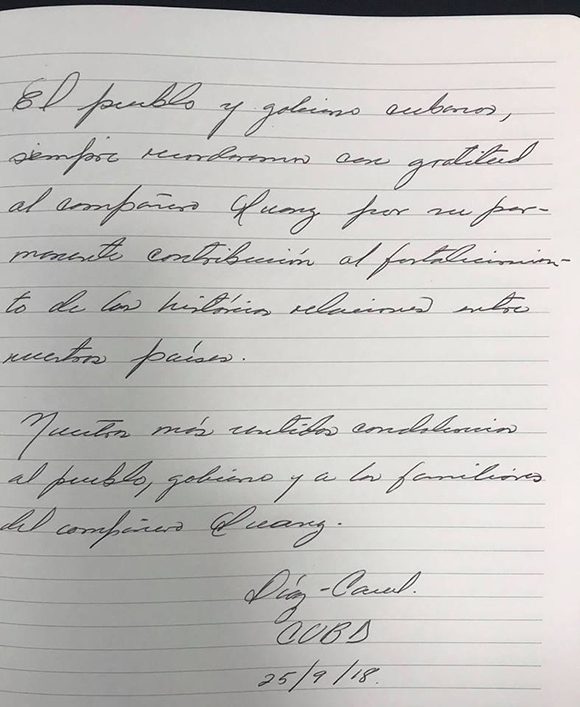 El pueblo y gobierno cubanos,
siempre recordaremos con gratitud
al compañero Quang por su per-
manente contribución al fortalecimien-
to de las históricas relaciones entre
nuestros países.
Nuestras más sentidas condolencias
al pueblo, gobierno y a los familiares
del compañero Quang.
Díaz-Canel.
CUBA
25/9/18.